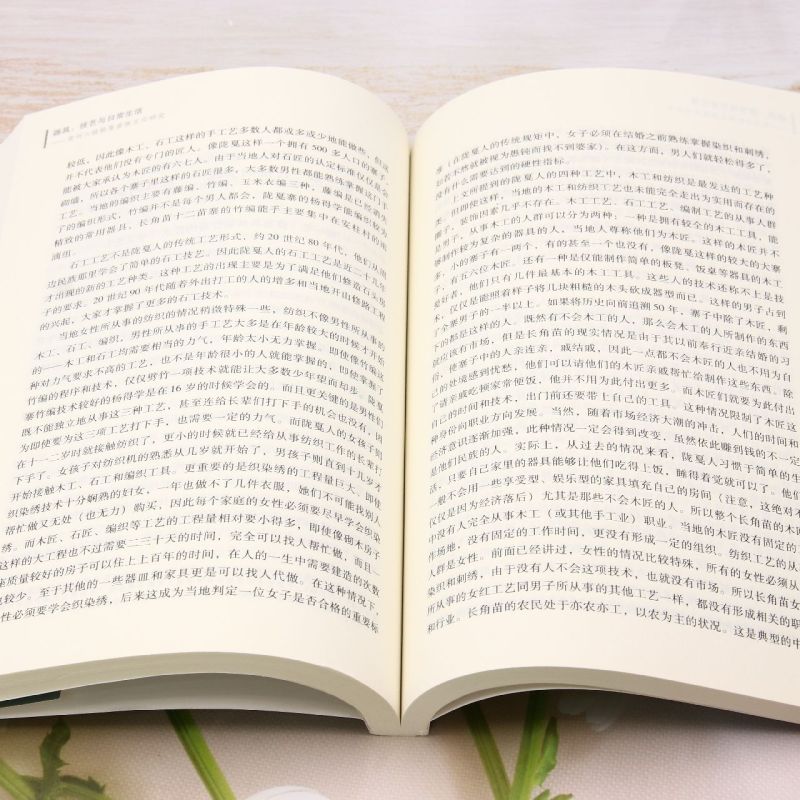 器具、技艺与日常生活
较低,因此像木工、石工这样的手工艺多数人都或多或少地能做些,但这
并不代表他们没有专门的匠人。像陇戛这样一个拥有500多人口的寨子,
能被大家承认为木匠的有六七人。由于当地人对石匠的认定标准仅仅是会
砌墙,所以各个寨子里这样的石匠很多。大多数男性都能熟练掌握这门手
工艺。当地的编织主要有藤编、竹编、玉米衣编三种,藤编是已经消失
了的编织形式,竹编并不是每个男人都会,陇戛寨的杨得学能编织较为
精致的常用器具,长角苗十二苗寨的竹编能手主要集中在安柱村的
满组。
石工工艺不是陇戛人的传统工艺形式,约20世纪80年代,他们从周
边民族那里学会了简单的石工技艺。因此陇戛人的石工工艺是近二十几年
才出现的新的工艺种类。这种工艺的出现主要是为了满足他们修造石头房
子的要求。20世纪90年代随着外出打工的人的增多和当地开山修路工程
的兴起,大家才掌握了更多的石工技术。
当地女性所从事的纺织的情况稍微特殊一些,纺织不像男性所从事的
木工、石工、编织,男性所从事的手工艺大多是在年龄较大的时候才开始
的——木工和石工均需要相当的力气,年龄太小无力掌握。即使像竹编这
种对力气要求不高的工艺,也不是年龄很小的人就能掌握的,即使掌握了
竹编的程序和技术,仅仅劈竹一项技术就能让大多数少年望而却步,陇戛
寨竹编技术较好的杨得学是在16岁的时候学会的。而且更关键的是男性们
既不能独立地从事这三种工艺,甚至连给长辈们打下手的机会也没有,因
为即使要为这三项工艺打下手,也需要一定的力气。而陇戛人的女孩子则
在十一二岁时就接触纺织了,更小的时候就已经给从事纺织工作的长辈打
下手了。女孩子对纺织机的熟悉从几岁就开始了,男孩子则直到十几岁才
开始接触木工、石工和编织工具。更重要的是织染绣的工程量巨大,即使
织染绣技术十分娴熟的妇女,一年也做不了几件衣服,她们不可能找别人
帮忙做又无处(也无力)购买,因此每个家庭的女性必须要尽早学会织染
绣。而木匠、石匠、编织等工艺的工程量相对要小得多,即使像砌木房子
这样的大工程也不过需要二三十天的时间,完全可以找人帮忙做,而且一
座质量较好的房子可以住上上百年的时间,在人的一生中需要建造的次数
也较少。至于其他的一些器皿和家具更是可以找人代做。在这种情况下,
性必须要学会织染绣,后来这成为当地判定一位女子是否合格的重要标
准(在陇戛人的传统规矩中,女子必须在结婚之前熟练掌握染织和刺绣,
否则就被视为愚钝而找不到婆家)。在这方面,男人们就轻松得多了,
没有什么需要达到的硬性指标。
上文所提到的陇戛人的四种工艺中,木工和纺织是最发达的工艺种
类。但即使这样,当地的木工和纺织工艺也未能完全走出为实用而存在的
装饰因素几乎不存在。木工工艺、石工工艺、编制工艺的从事人群
男子,从事木工的人群可以分为两种:一种是拥有较全的木工工具,能
够制作较为复杂的器具的人,当地人尊称他们为木匠。这样的木匠并不
小的寨子有一两个,有的甚至一个也没有,像陇戛这样的较大的寨
子,有五六位木匠。还有一种是仅能制作简单的板凳、饭桌等器具的木工
爱好者,他们只有几件最基本的木工工具。这些人的技术还称不上是技
术,仅仅是能照着样子将几块粗糙的木头砍成器型而已。这样的男子占到
了全寨男子的一半以上。如果将历史向前追溯50年,寨子中除了木匠,剩
下的都是这样的人。既然有不会木工的人,那么会木工的人所制作的东西
应该有市场。但是长角苗的现实情况是由于其以前奉行近亲结婚的习
俗,使寨子中的人亲连亲,戚结戚,因此一点都不会木匠的人也不用为自
己的处境感到忧愁,他们可以请他们的木匠亲戚帮忙给制作这些东西。除
了请亲戚吃顿家常便饭,他并不用为此付出更多。而木匠们就要为此付出
自己的时间和技术,出门前还要带上自己的工具。这种情况限制了木匠这
种身份向职业方向发展。当然,随着市场经济大潮的冲击,人们的时间和
经济意识逐渐加强,此种情况一定会得到改变,虽然依此赚到钱的不一定
是他们民族的人。实际上,从过去的情况来看,陇戛人习惯于简单的生
活,只要自己家里的器具能够让他们吃得上饭,睡得着觉就可以了。他们
一般不会用一些享受型、娱乐型的家具填充自己的房间(注意,这绝对不
仅仅是因为经济落后)尤其是那些不会木匠的人。所以整个长角苗的木匠
中没有人完全从事木工(或其他手工业)职业。当地的木匠没有固定的工
作场地,没有固定的工作时间,更没有形成一定的组织。纺织工艺的从事
人群是女性。前面已经讲过,女性的情况比较特殊,所有的女性必须从事
染织和刺绣,由于没有人不会这项技术,也就没有市场。所以长角苗女性
所从事的女红工艺同男子所从事的其他工艺一样,都没有形成相关的职业
和行业。长角苗的农民处于亦农亦工,以农为主的状况。这是典型的中